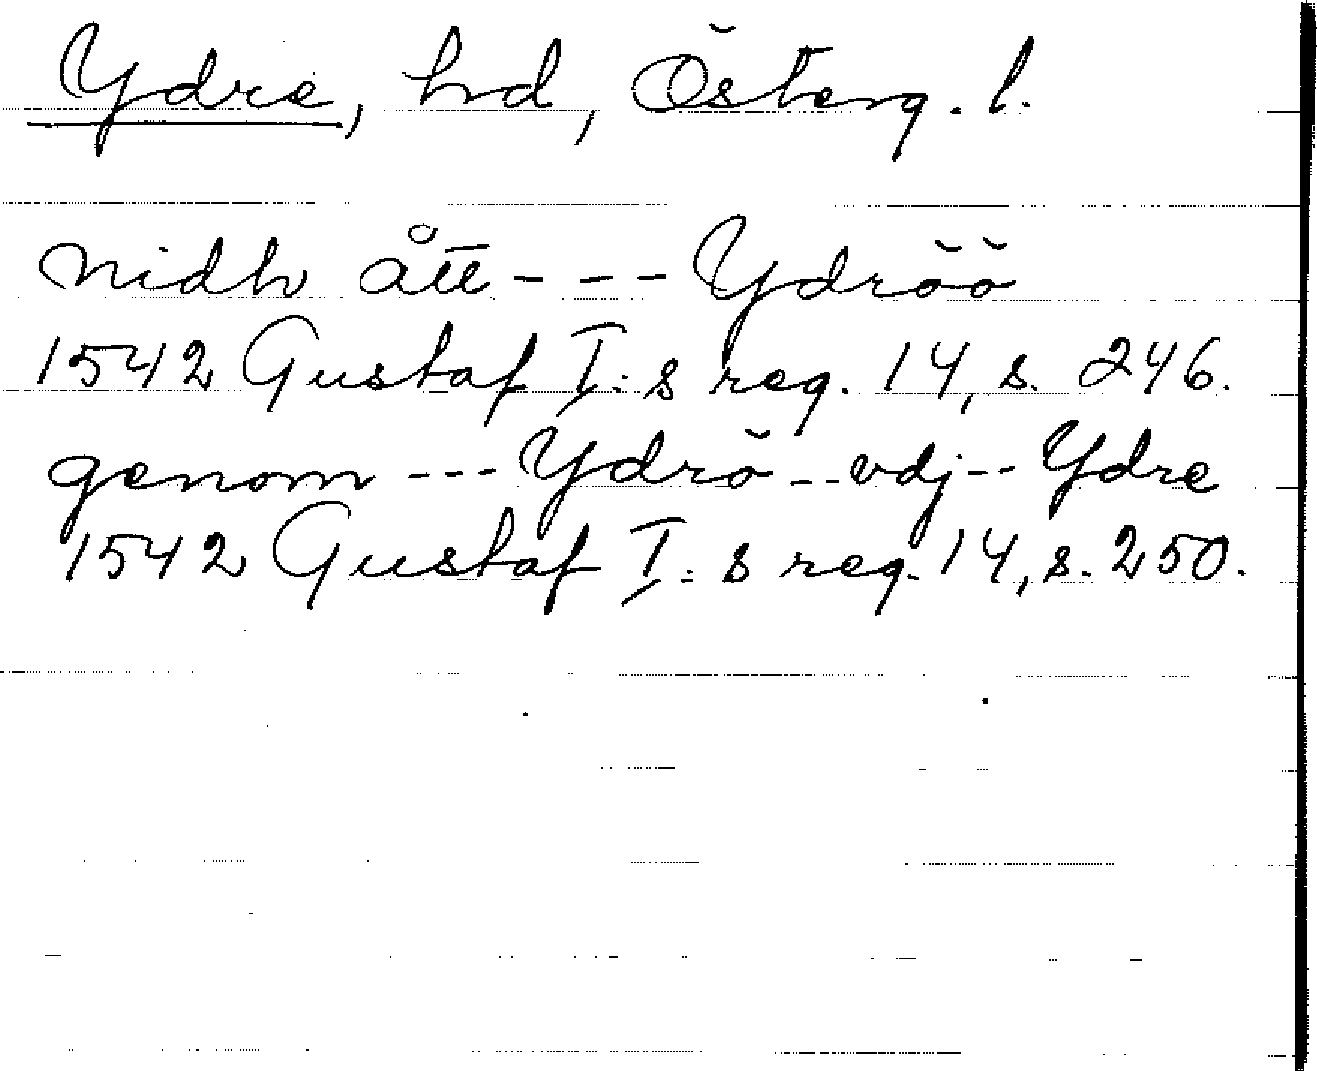 Ydre, hd, Österg. l.
nidh ått - - - Ydröö
1542 Gustaf I:s reg. 14, s. 246.
genom - - - Ydrö - - vdj - - Ydre
1542 Gustaf I:s reg. 14, s. 250.